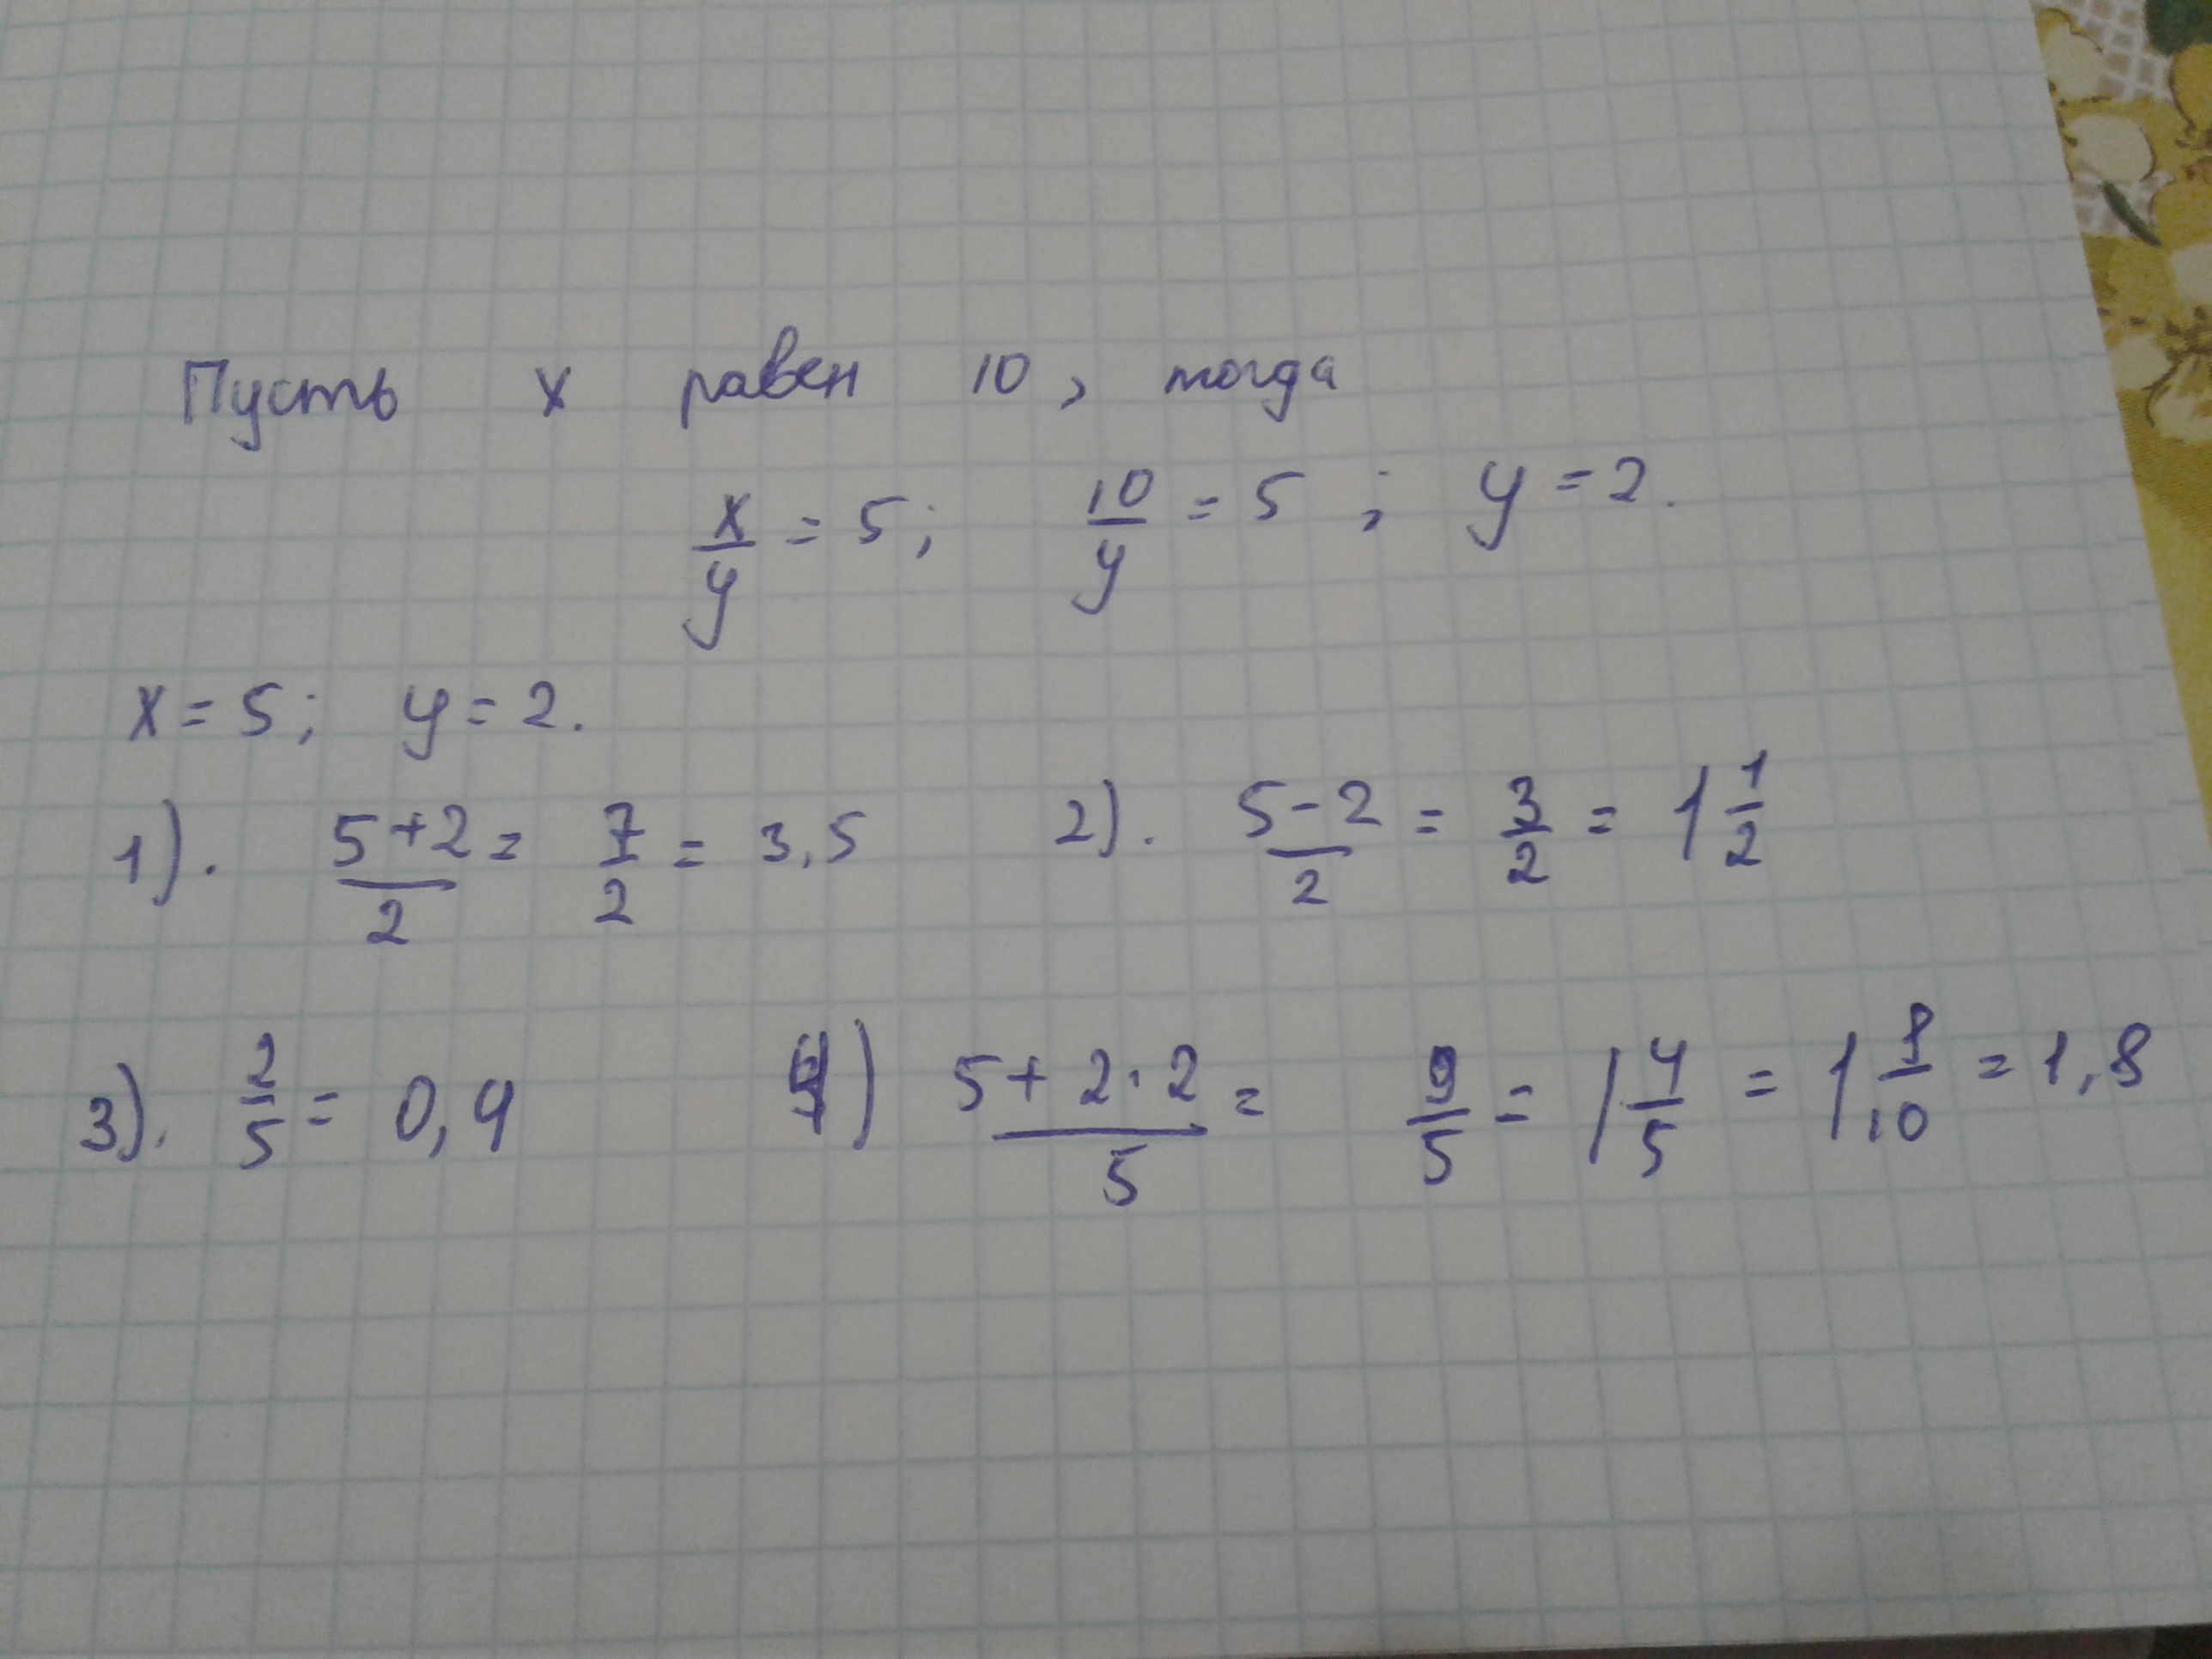 Пусть x равен 10, тогда
x/y = 5; 10/y = 5; y = 2.
x = 5; y = 2.
1). (5+2)/2 = 7/2 = 3,5 2). (5-2)/2 = 3/2 = 1 1/2
3). 2/5 = 0,4 4) (5+2·2)/5 = 9/5 = 1 4/5 = 1 8/10 = 1,8